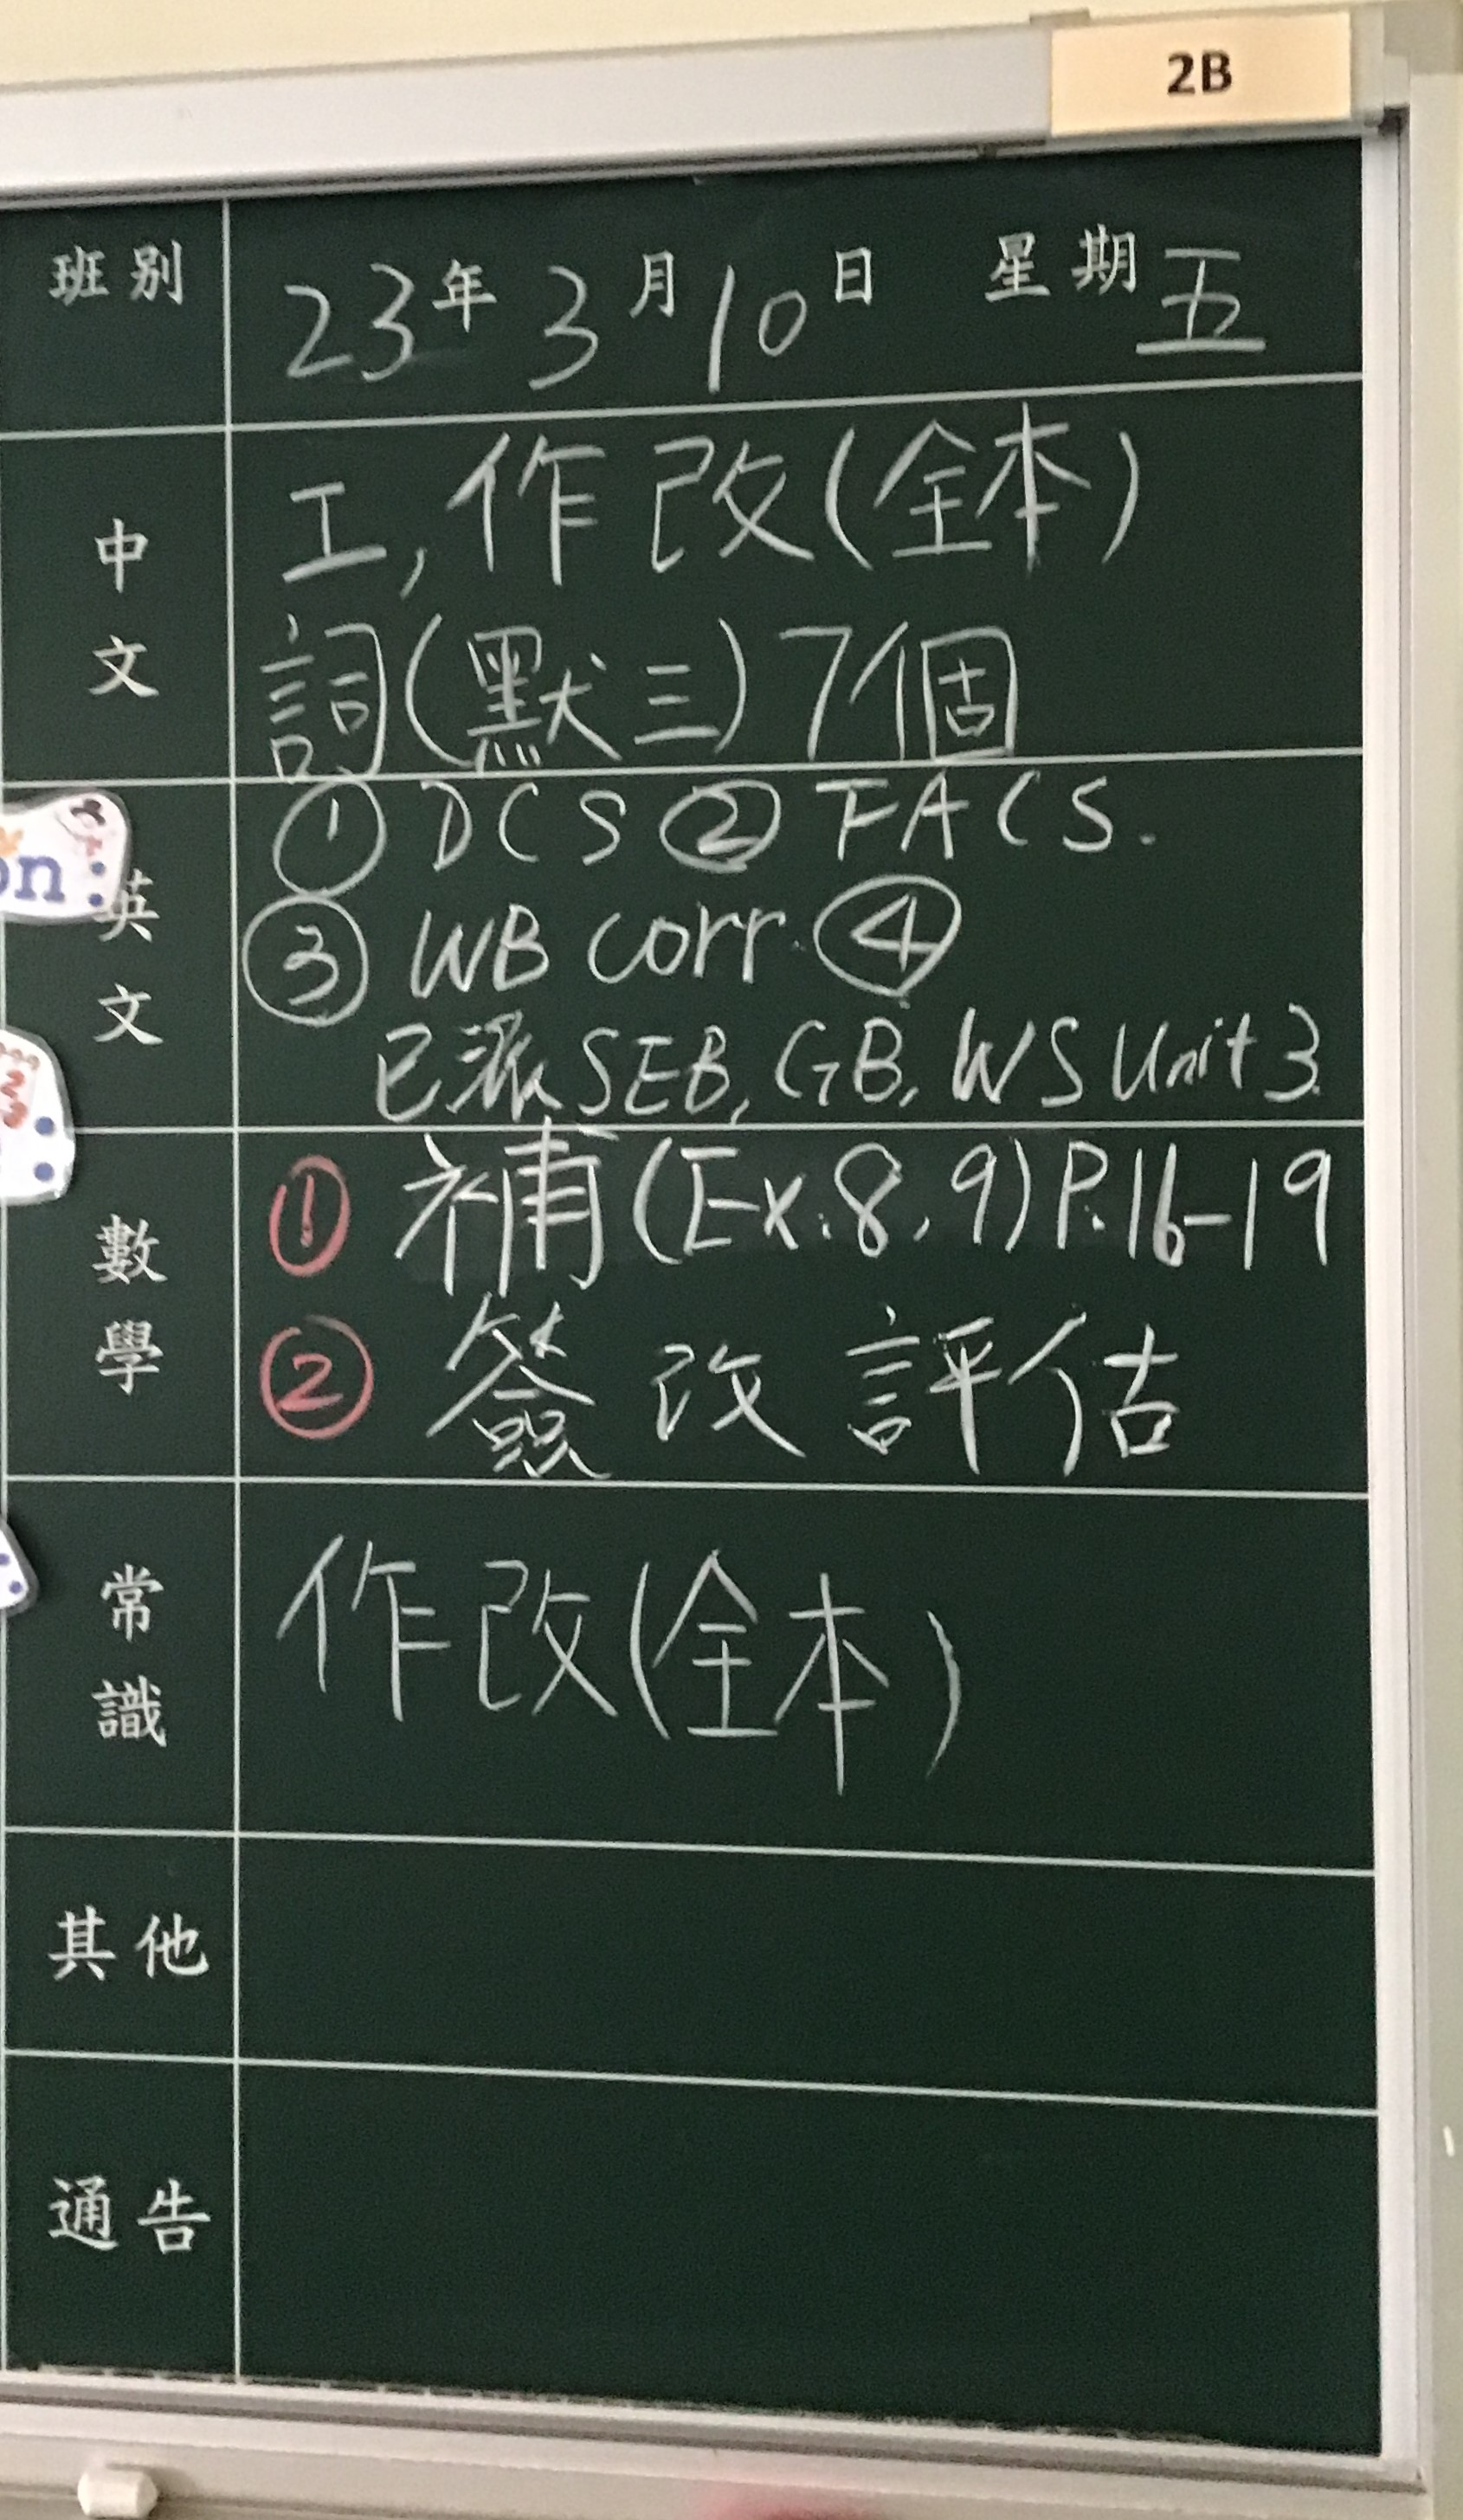 2B
班別 23年3月10日 星期五
中文 工,作改(全本)
詞(默三)7個
on:
英文 ① DCS ② FACS.
③ WB corr. ④
已派SEB, GB, WS Unit 3.
數學 ① 補(Ex.8,9)P.16-19
② 簽改評估
常識 作改(全本)
其他
通告